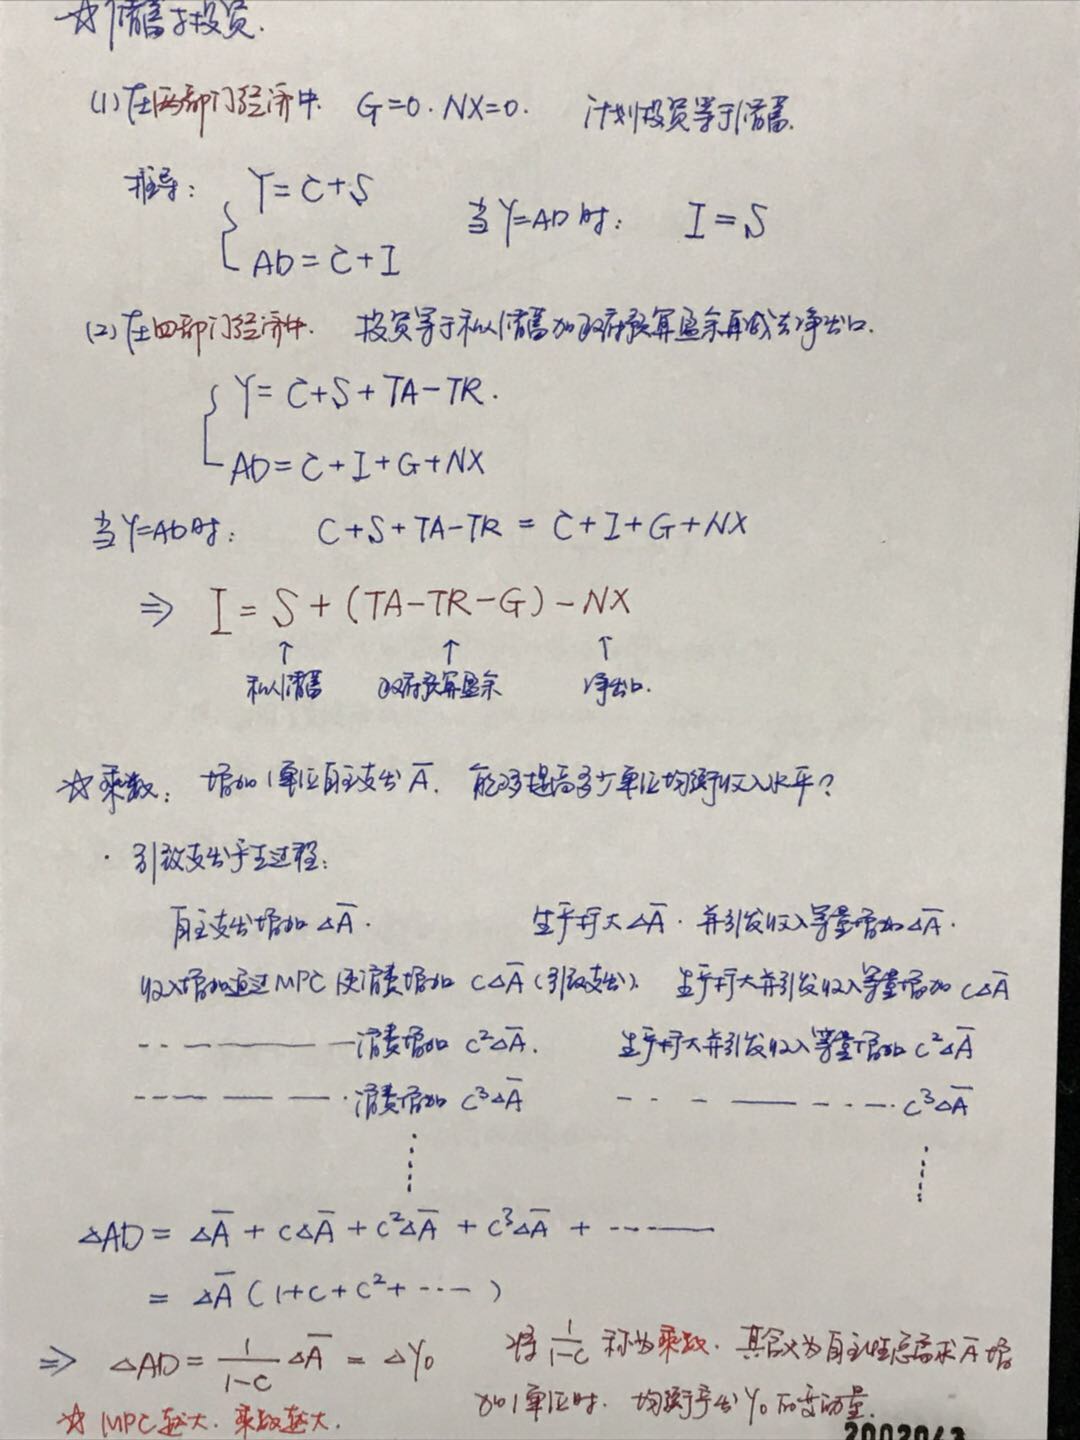 ☆储蓄与投资.
(1)在两部门经济中. G=0. NX=0. 计划投资等于储蓄.
推导: Y=C+S
当Y=AD时: I=S
AD=C+I
(2)在四部门经济中. 投资等于私人储蓄加政府预算盈余再减去净出口.
Y=C+S+TA-TR.
AD=C+I+G+NX
当Y=AD时: C+S+TA-TR=C+I+G+NX
⇒ I=S+(TA-TR-G)-NX
↑ ↑ ↑
私人储蓄 政府预算盈余 净出口.
☆乘数: 增加1单位自主支出Ā. 能够提高多少单位均衡收入水平?
· 引致支出产生过程:
自主支出增加ΔĀ. 生产扩大ΔĀ. 并引发收入等量增加ΔĀ.
收入增加通过MPC使消费增加cΔĀ(引致支出). 生产扩大并引发收入等量增加cΔĀ
-- — — — —消费增加c²ΔĀ. 生产扩大并引发收入等量增加c²ΔĀ
-- — — — — ·消费增加c³ΔĀ - - - — - - - ·c³ΔĀ
ΔAD=ΔĀ+cΔĀ+c²ΔĀ+c³ΔĀ+……
=ΔĀ(1+c+c²+……)
⇒ ΔAD=1/(1-c) ΔĀ=ΔY₀ 将1/(1-c)称为乘数. 其含义为自主性总需求Ā增
加1单位时. 均衡产出Y₀的变动量.
☆MPC越大. 乘数越大.
2002043